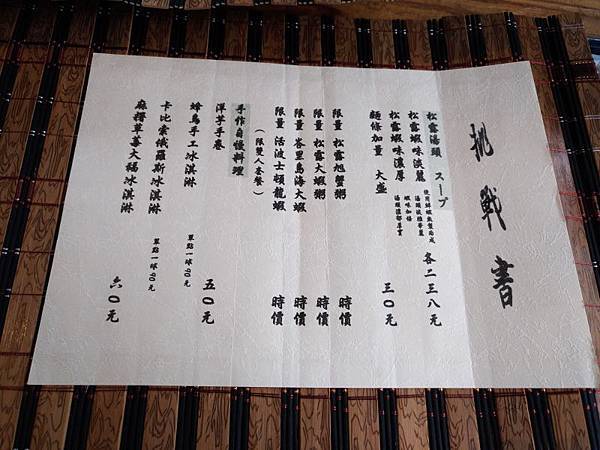 挑戰書
松露湯頭 スープ
松露蝦味淡麗 使用鮮蝦熬製而成 湯頭淡雅華麗 各二三八元
松露蝦味濃厚 蝦味加倍 湯頭濃郁厚實
麵條加量 大盛 三〇元
限量 松露旭蟹粥 時價
限量 松露大蝦粥 時價
限量 峇里島海大蝦 時價
限量 活波士頓龍蝦 時價
(限雙人套餐)
手作自慢料理
洋芋手卷 五〇元
蜂鳥手工冰淇淋 單點一球90元
卡比索俄羅斯冰淇淋 單點一球90元
麻糬草莓大福冰淇淋 六〇元